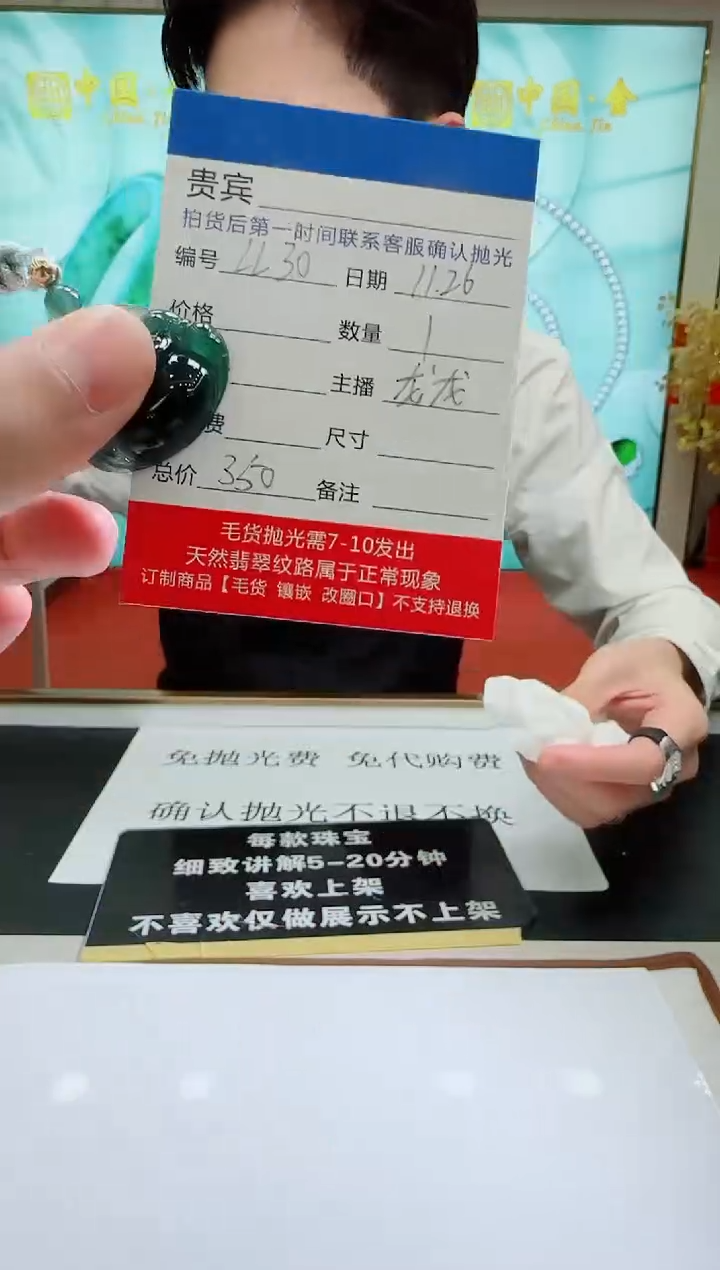 中国·金
China.Jin
中国·金
China.Jin
贵宾
拍货后第一时间联系客服确认抛光
编号 1130 日期 11.26
价格 数量 1
主播 龙龙
费 尺寸
总价 350 备注
毛货抛光需7-10发出
天然翡翠纹路属于正常现象
订制商品【毛货 镶嵌 改圈口】不支持退换
免抛光费 免代购费
确认抛光不退不换
每款珠宝
细致讲解5-20分钟
喜欢上架
不喜欢仅做展示不上架